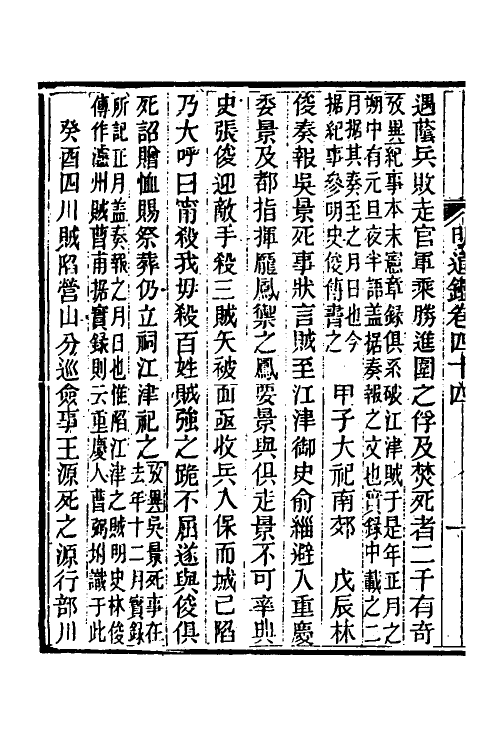 明通鑑卷四十四
一
遇蔭兵敗走官軍乘勝進圍之俘及焚死者二千有奇
攷異紀事本末憲章錄俱系破江津賊于是年正月之
朔中有元旦夜半語蓋据奏報之文也實錄中載之二
月据其奏至之月日也今
据紀事參明史俊傳書之 甲子大祀南郊 戊辰林
俊奏報吳景死事狀言賊至江津御史俞緇避入重慶
委景及都指揮龐鳳禦之鳳要景與俱走景不可率典
史張俊迎敵手殺三賊矢被面亟收兵入保而城已陷
乃大呼曰甯殺我毋殺百姓賊強之跪不屈遂與俊俱
死詔贈恤賜祭葬仍立祠江津祀之攷異吳景死事在
去年十二月實錄
所記正月蓋奏報之月日也惟陷江津之賊明史林俊
傳作瀘州賊曹甫据實錄則云重慶人曹弼坿識于此
癸酉四川賊陷營山分巡僉事王源死之源行部川